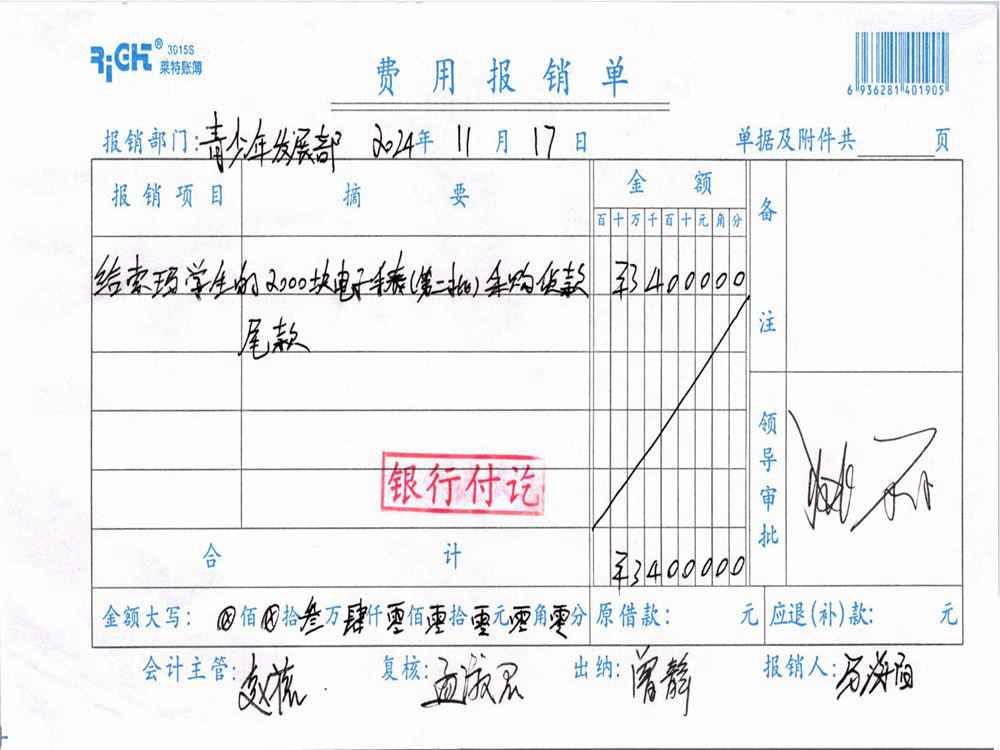 RiCH® 3015S
莱特账簿
费用报销单
6 936281 401905
报销部门:青少年发展部 2024年 11月 17日 单据及附件共 页
报销项目 摘要 金额 备注
百十万千百十元角分
给索玛学生的2000块电子手表(第二批)采购货款 ¥3400000
尾款
领导审批
银行付讫
合计 ¥3400000
金额大写: ⊗佰⊗拾叁万肆仟零佰零拾零元零角零分 原借款: 元 应退(补)款: 元
会计主管: 复核: 孟淑君 出纳: 曾静 报销人: